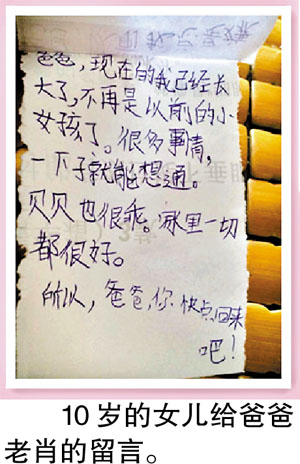 爸爸，现在的我已经长
大了，不再是以前的小
女孩了。很多事情，
一下子就能想通。
贝贝也很乖。家里一切
都很好。
所以，爸爸，你快点回来
吧！
10岁的女儿给爸爸
老肖的留言。